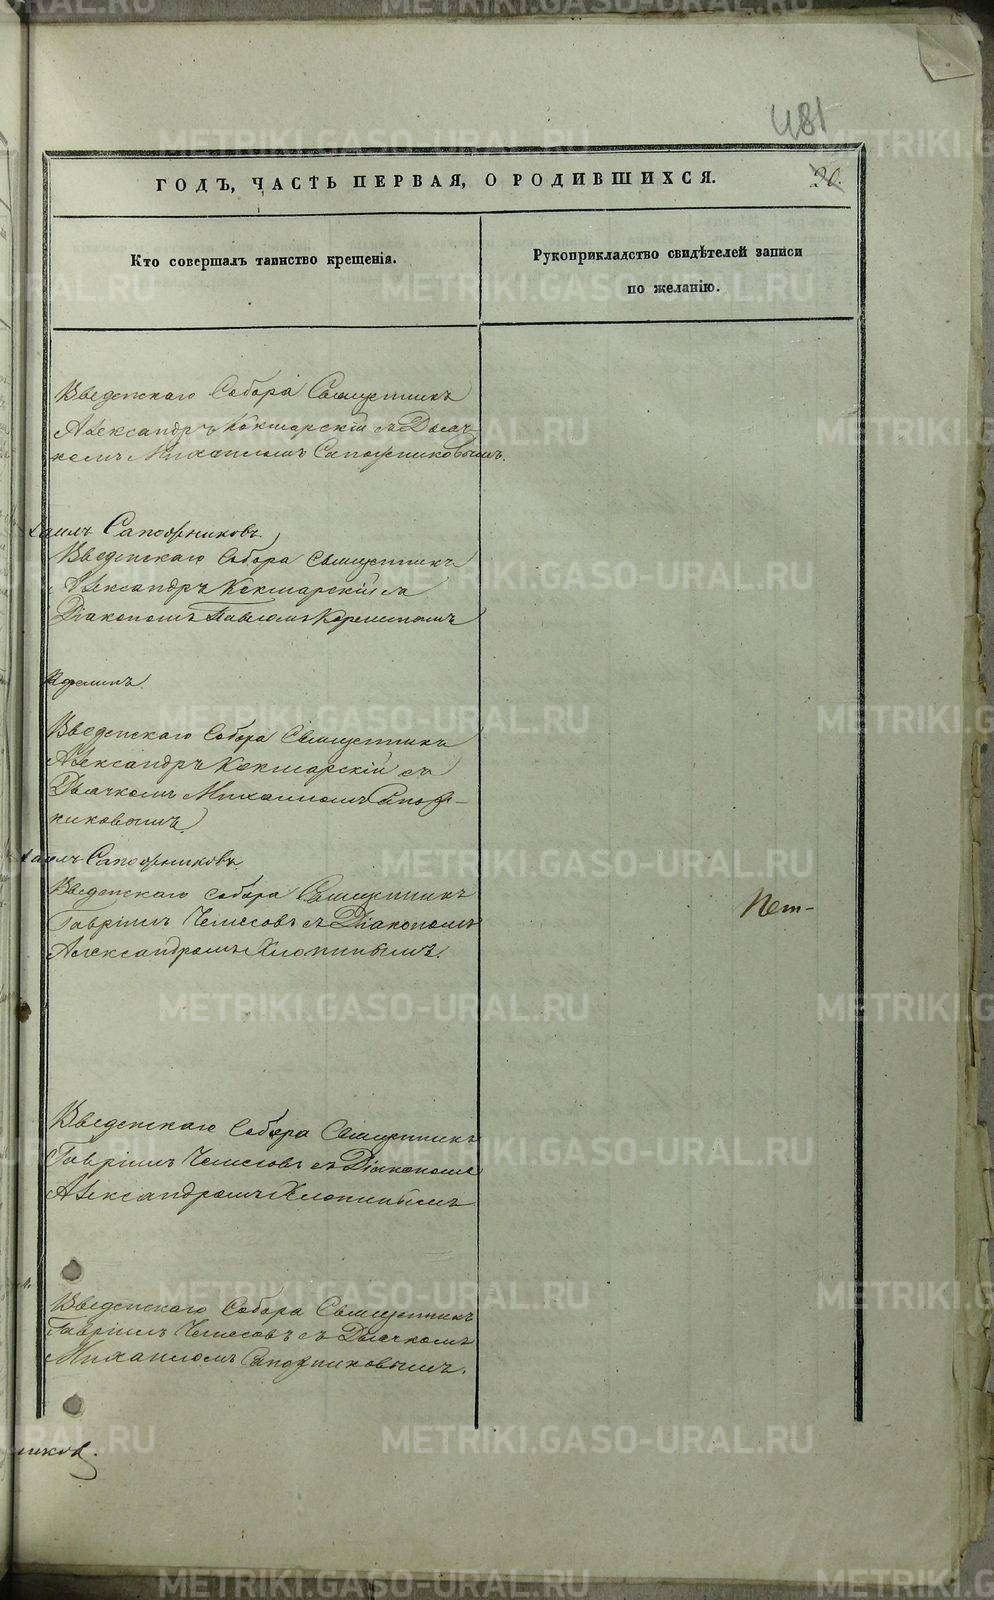 481
ГОДЪ, ЧАСТЬ ПЕРВАЯ, О РОДИВШИХСЯ.
20.
Кто совершалъ таинство крещенія.
Рукоприкладство свидѣтелей записи
по желанію.
Введенскаго Собора Священникъ
Александръ Кокшарскій съ Дьяч-
комъ Михаиломъ Сапожниковымъ.
Сапожниковъ.
Введенскаго Собора Священникъ
Александръ Кокшарскій съ
Діакономъ Павломъ
Введенскаго Собора Священникъ
Александръ Кокшарскій съ
Дьячкомъ Михаиломъ Сапож-
никовымъ.
Сапожниковъ.
Введенскаго Собора Священникъ
Гавріилъ Чемесовъ съ Діакономъ
Александромъ Хлопинымъ.
Нет-
Введенскаго Собора Священникъ
Гавріилъ Чемесовъ съ Діакономъ
Александромъ Хлопинымъ
Введенскаго Собора Священникъ
Гавріилъ Чемесовъ съ Дьячкомъ
Михаиломъ Сапожниковымъ.
METRIKI.GASO-URAL.RU